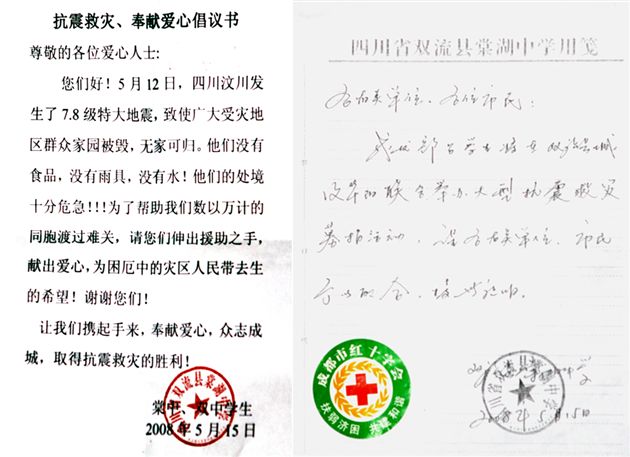 抗震救灾、奉献爱心倡议书
尊敬的各位爱心人士:
您们好！5月12日，四川汶川发
生了7.8级特大地震，致使广大受灾地
区群众家园被毁，无家可归。他们没有
食品，没有雨具，没有水！他们的处境
十分危急!!!为了帮助我们数以万计的
同胞渡过难关，请您们伸出援助之手，
献出爱心，为困厄中的灾区人民带去生
的希望！谢谢您们！
让我们携起手来，奉献爱心，众志成
城，取得抗震救灾的胜利！
四川省双流县棠湖中学
棠中、双中学生
2008年5月15日
四川省双流县棠湖中学用笺
各有关单位、各位市民：
我校部分学生将在双流县城
设点联合举办大型抗震救灾
募捐活动，望各有关单位、市民
予以配合，特此说明。
成都市红十字会
扶弱济困 共建和谐
四川省双流县棠湖中学
2008年5月15日